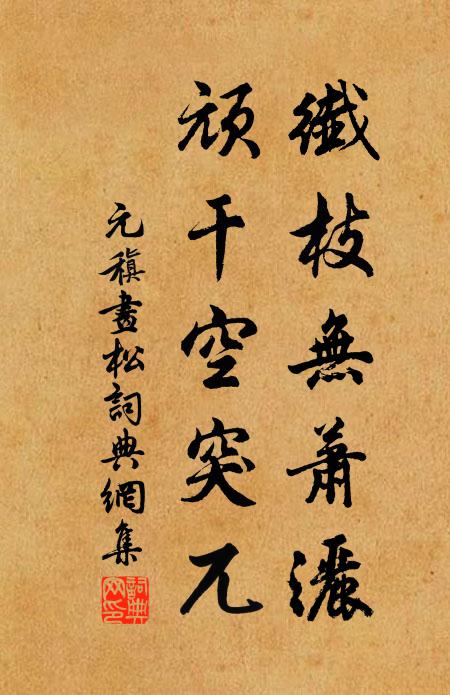 纖枝無蕭灑
頑干空突兀
元稹畫松詞典網集
詞典網印